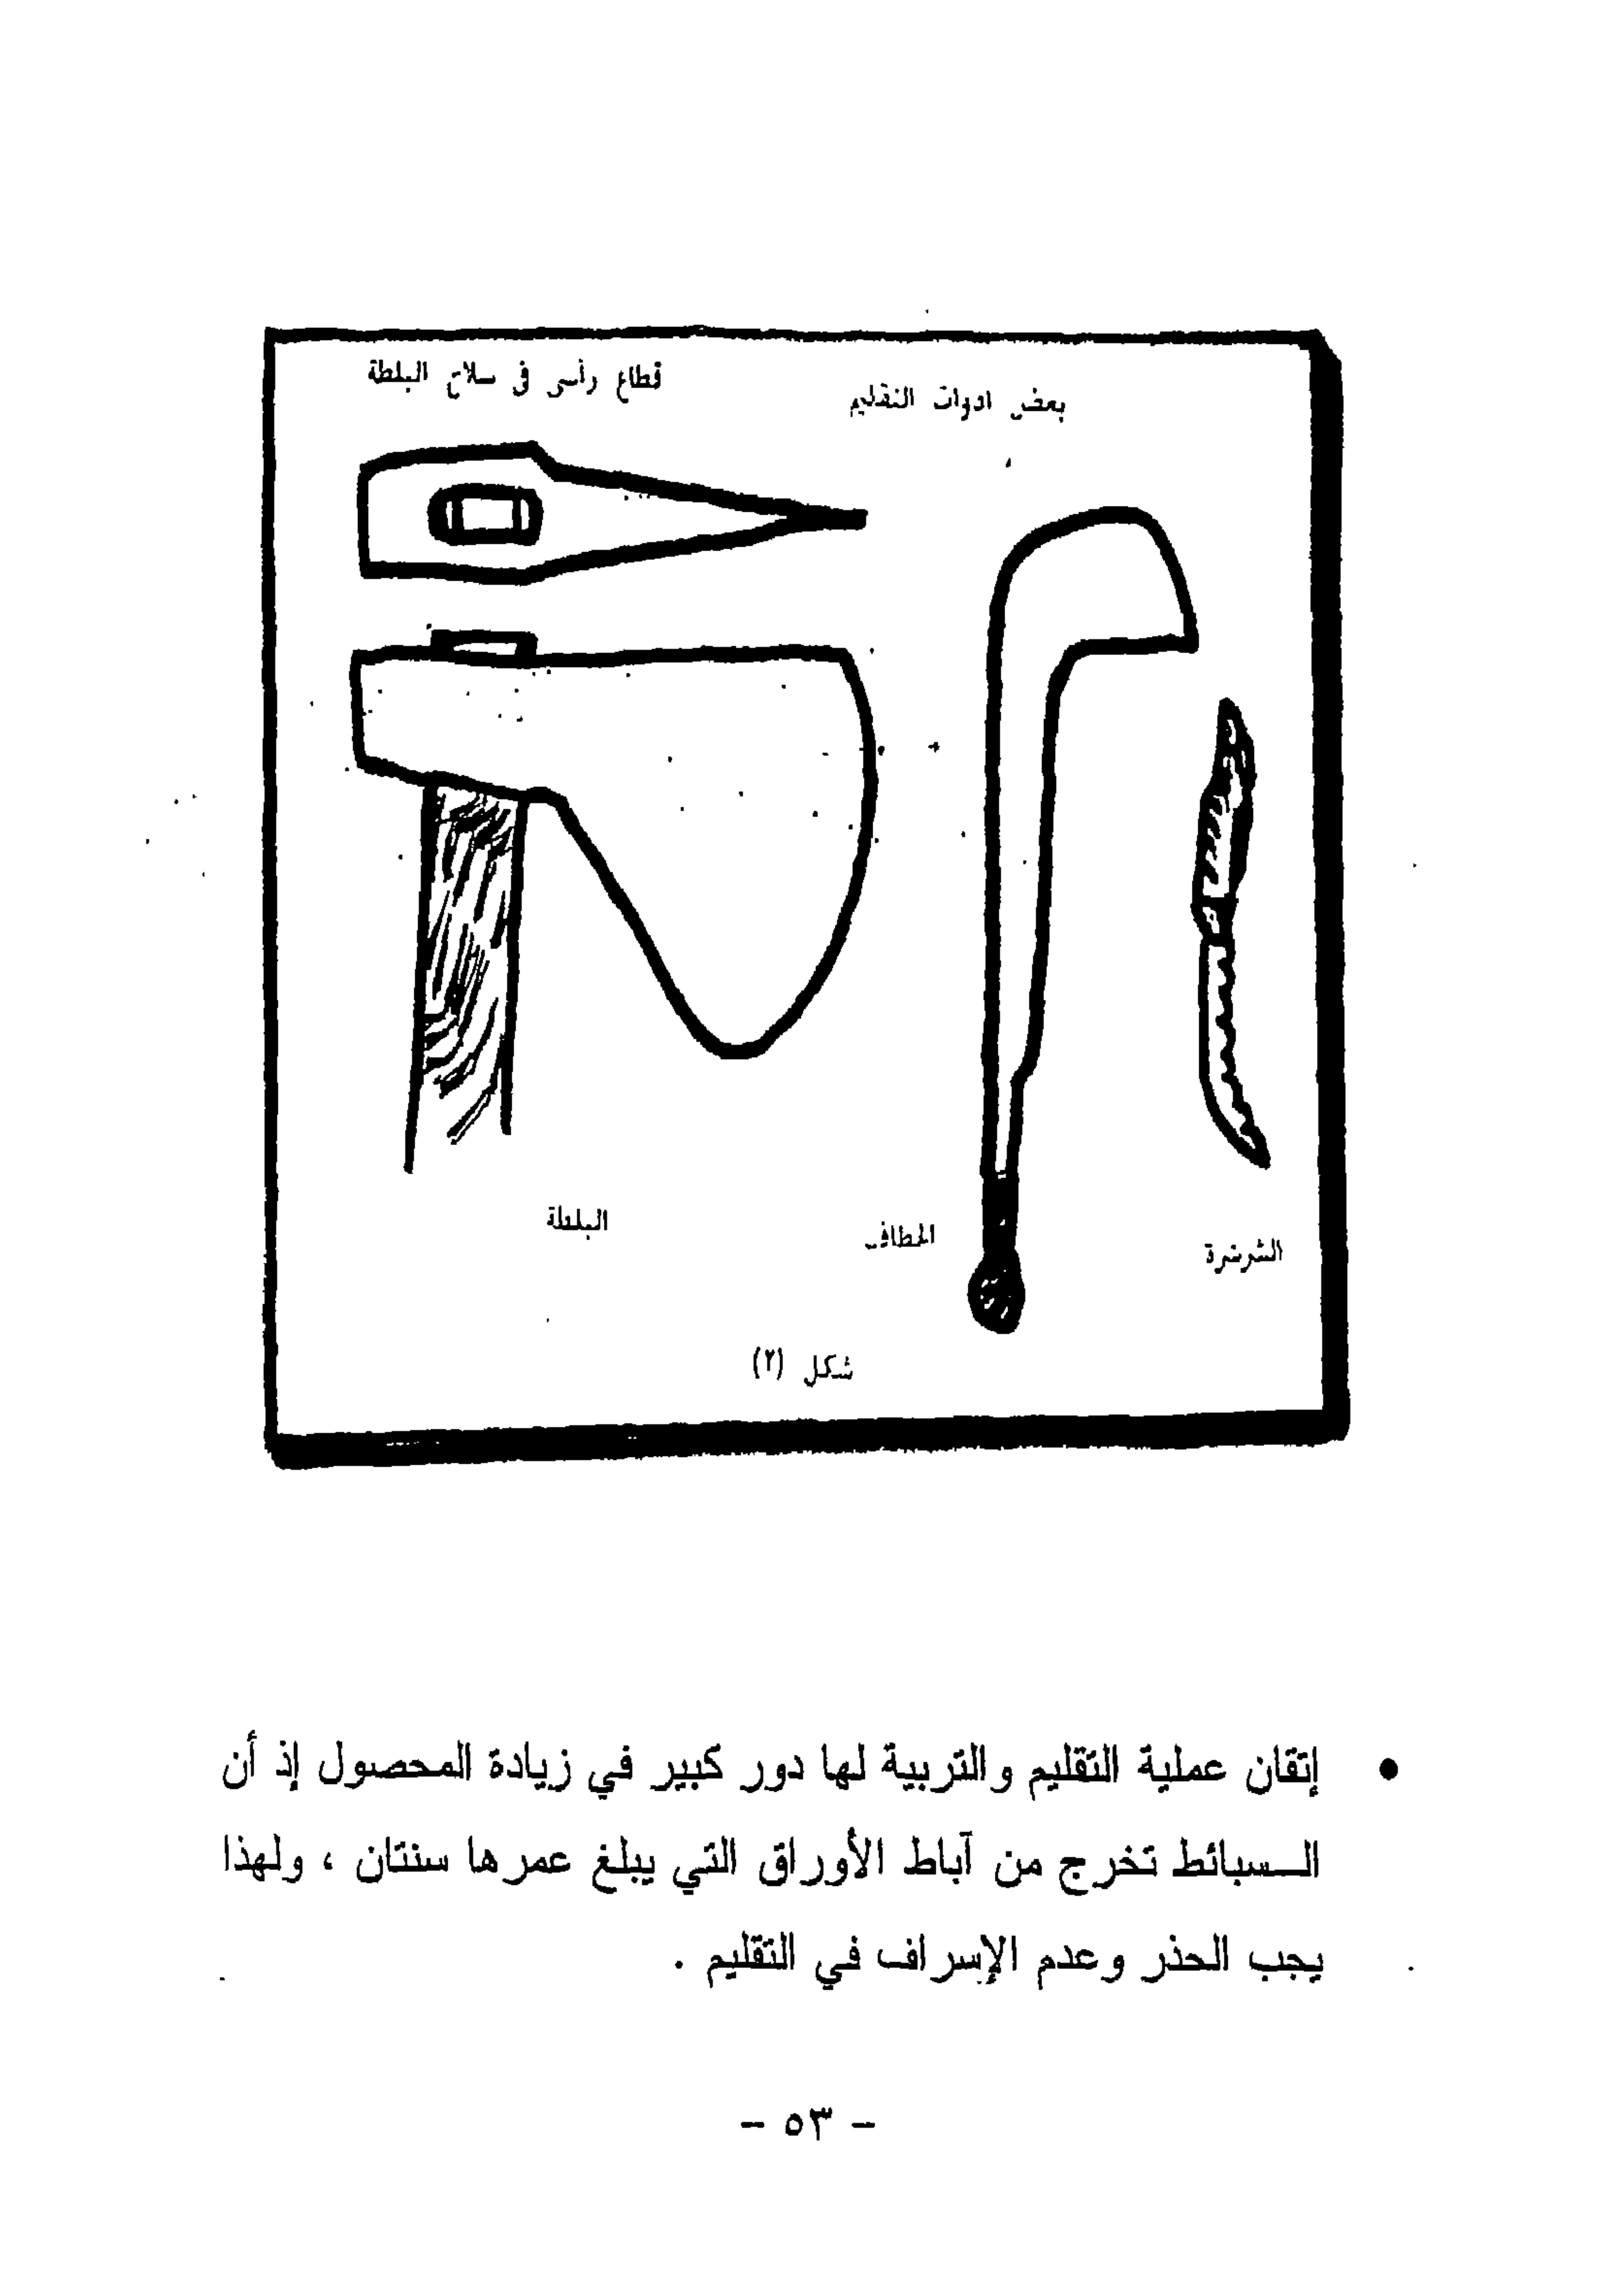 بعض ادوات التقليم
قطاع رأسى فى سلاح البلطة
الشرشرة
الخطاف
البلطة
شكل (٢)
● إتقان عملية التقليم والتربية لها دور كبير في زيادة المحصول إذ أن
السبائط تخرج من آباط الأوراق التي يبلغ عمرها سنتان ، ولهذا
يجب الحذر وعدم الإسراف في التقليم .
- ٥٣ -